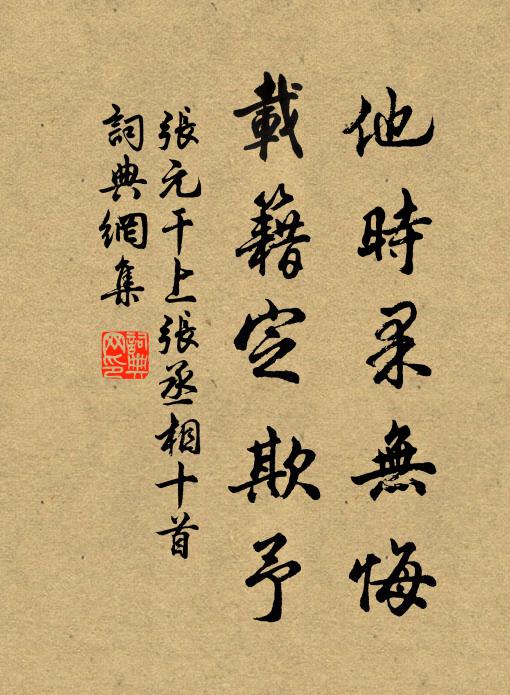 他時果無悔
載籍定欺予
張元干上張丞相十首
詞典網集
詞典網印